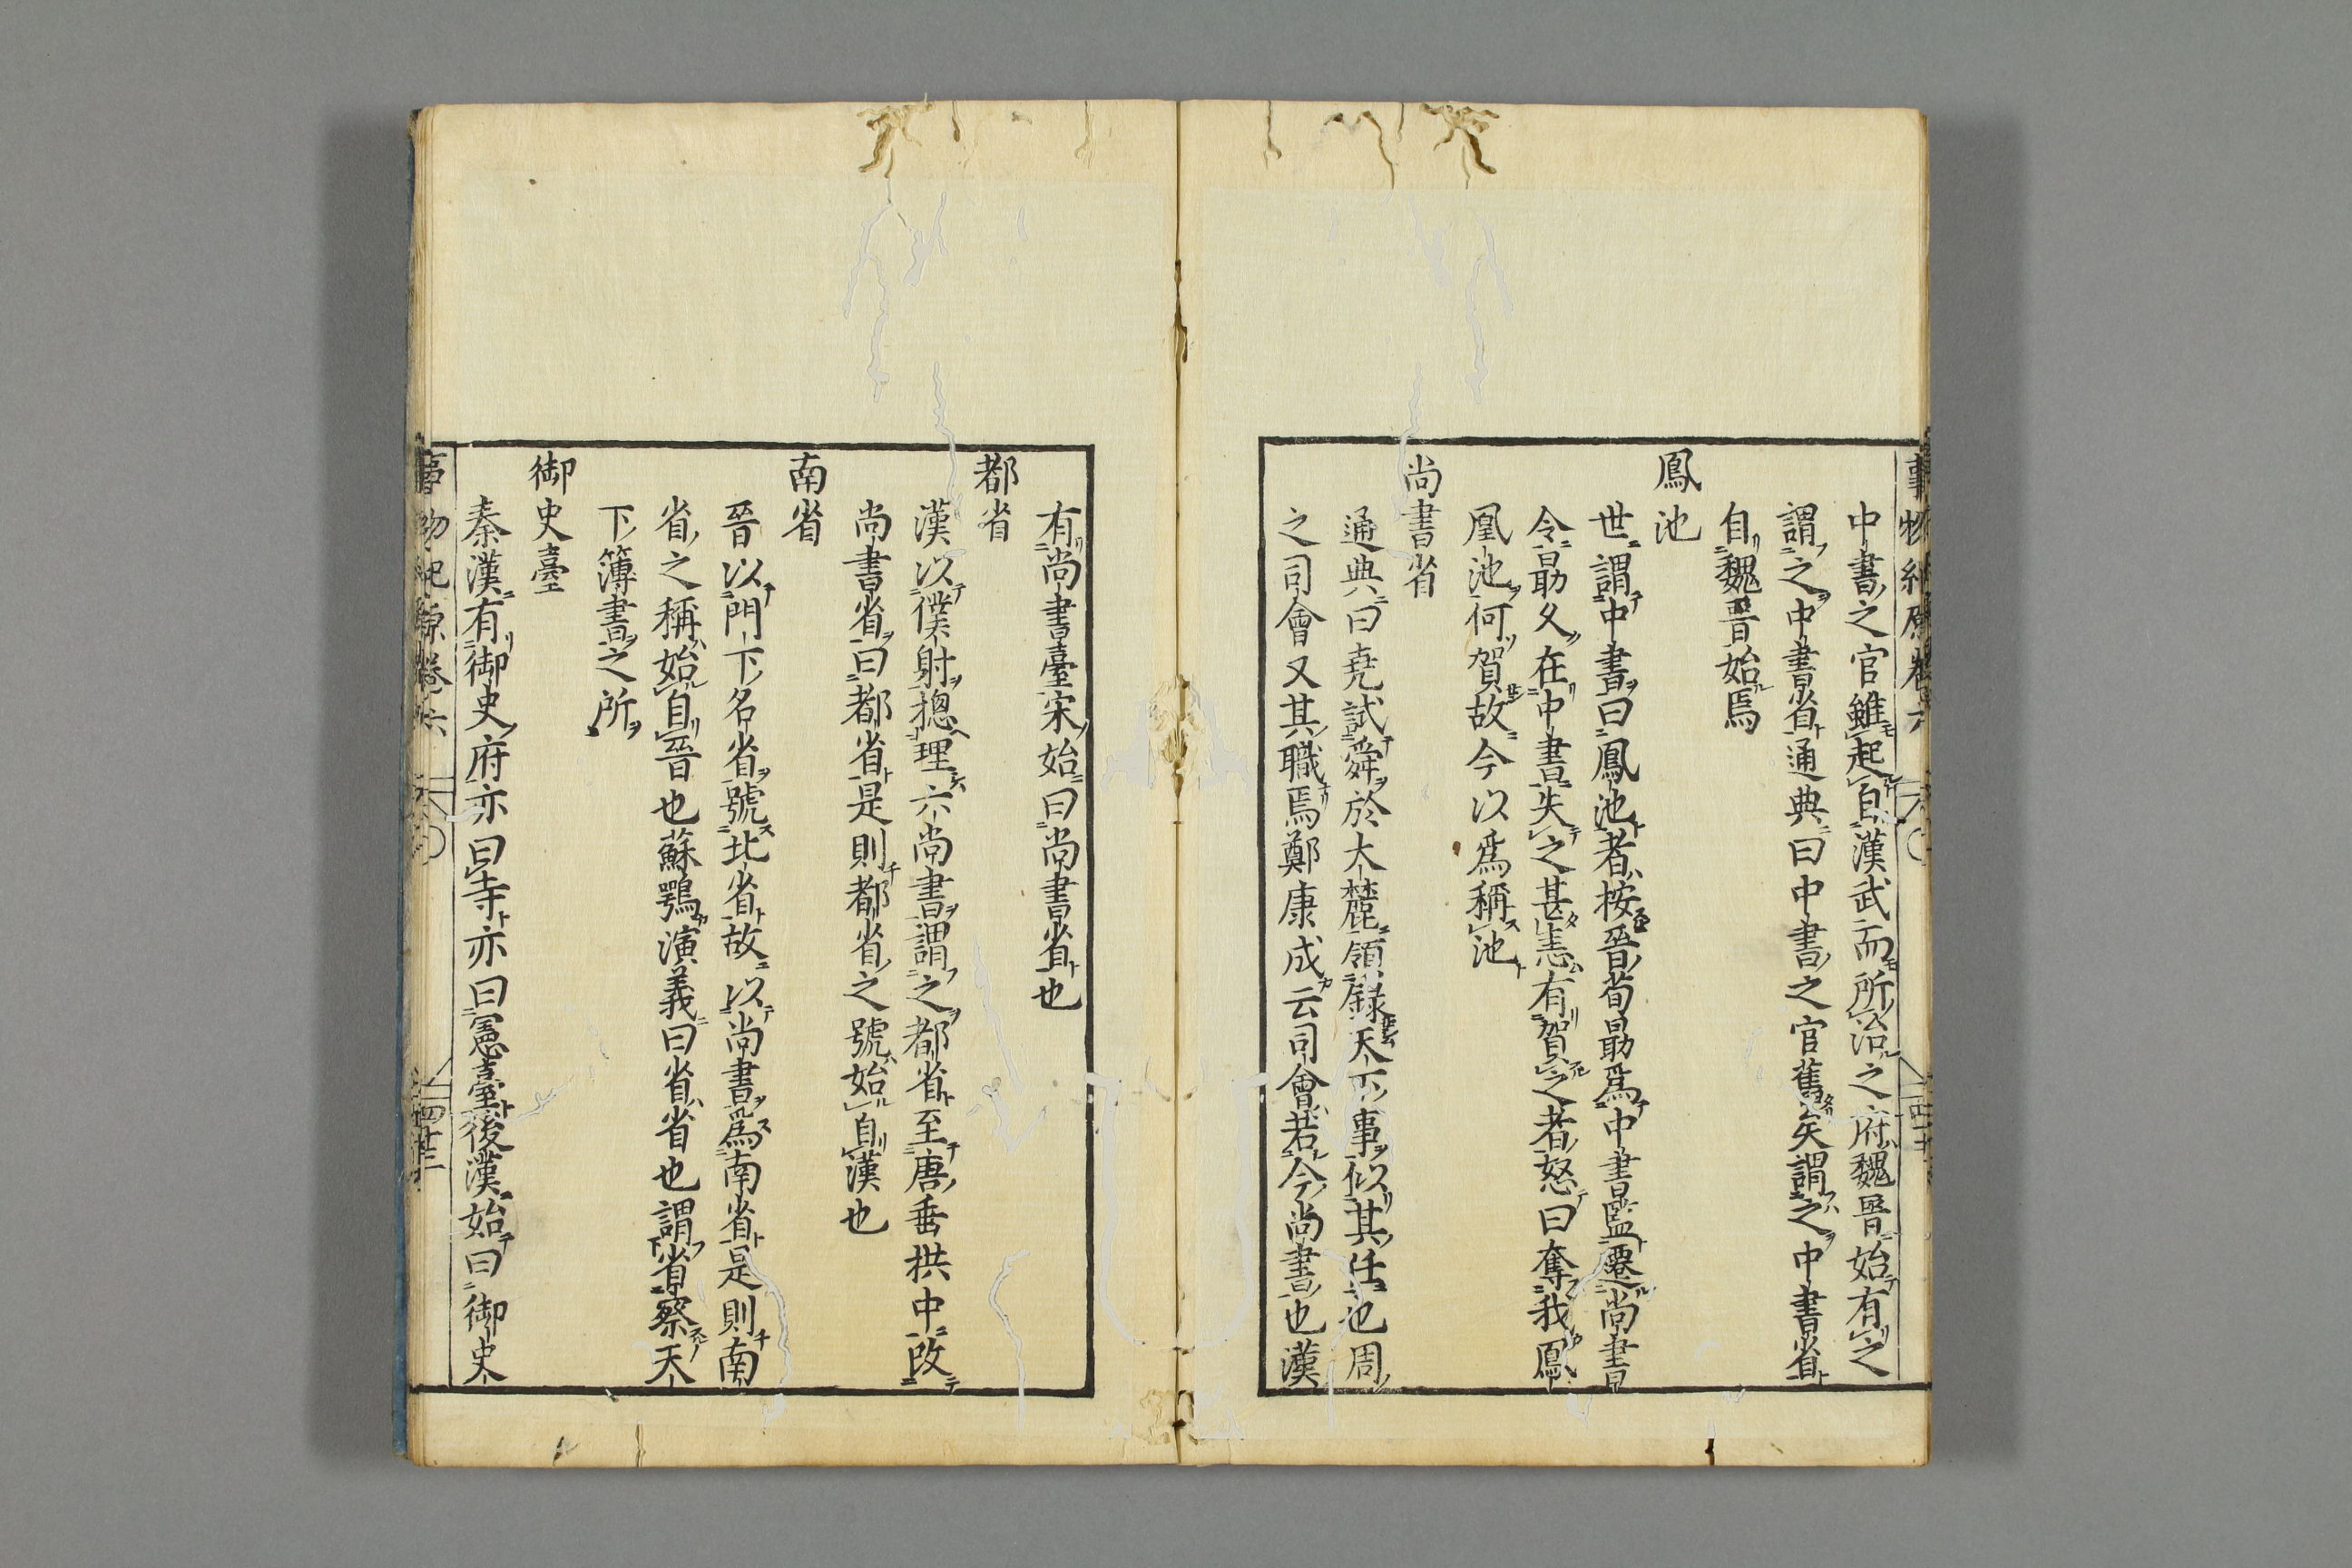 中書之官雖起自漢武而所治之府魏晉始有之
謂之中書省通典曰中書之官舊矣謂之中書省
自魏晉始焉
鳳池
世謂中書曰鳳池者按晉荀勗爲中書監遷尚書
令勗久在中書失之甚恚有賀之者怒曰奪我鳳
凰池何賀故今以爲稱池
尚書省
通典曰堯試舜於大麓領錄天下事似其任也周
之司會又其職焉鄭康成云司會若今尚書也漢
有尚書臺宋始曰尚書省也
都省
漢以僕射摠理六尚書謂之都省至唐垂拱中改
尚書省曰都省是則都省之號始自漢也
南省
晉以門下名省號北省故以尚書爲南省是則南
省之稱始自晉也蘇鶚演義曰省省也謂省察天
下簿書之所
御史臺
秦漢有御史府亦曰寺亦曰憲臺後漢始曰御史
事物紀原卷六